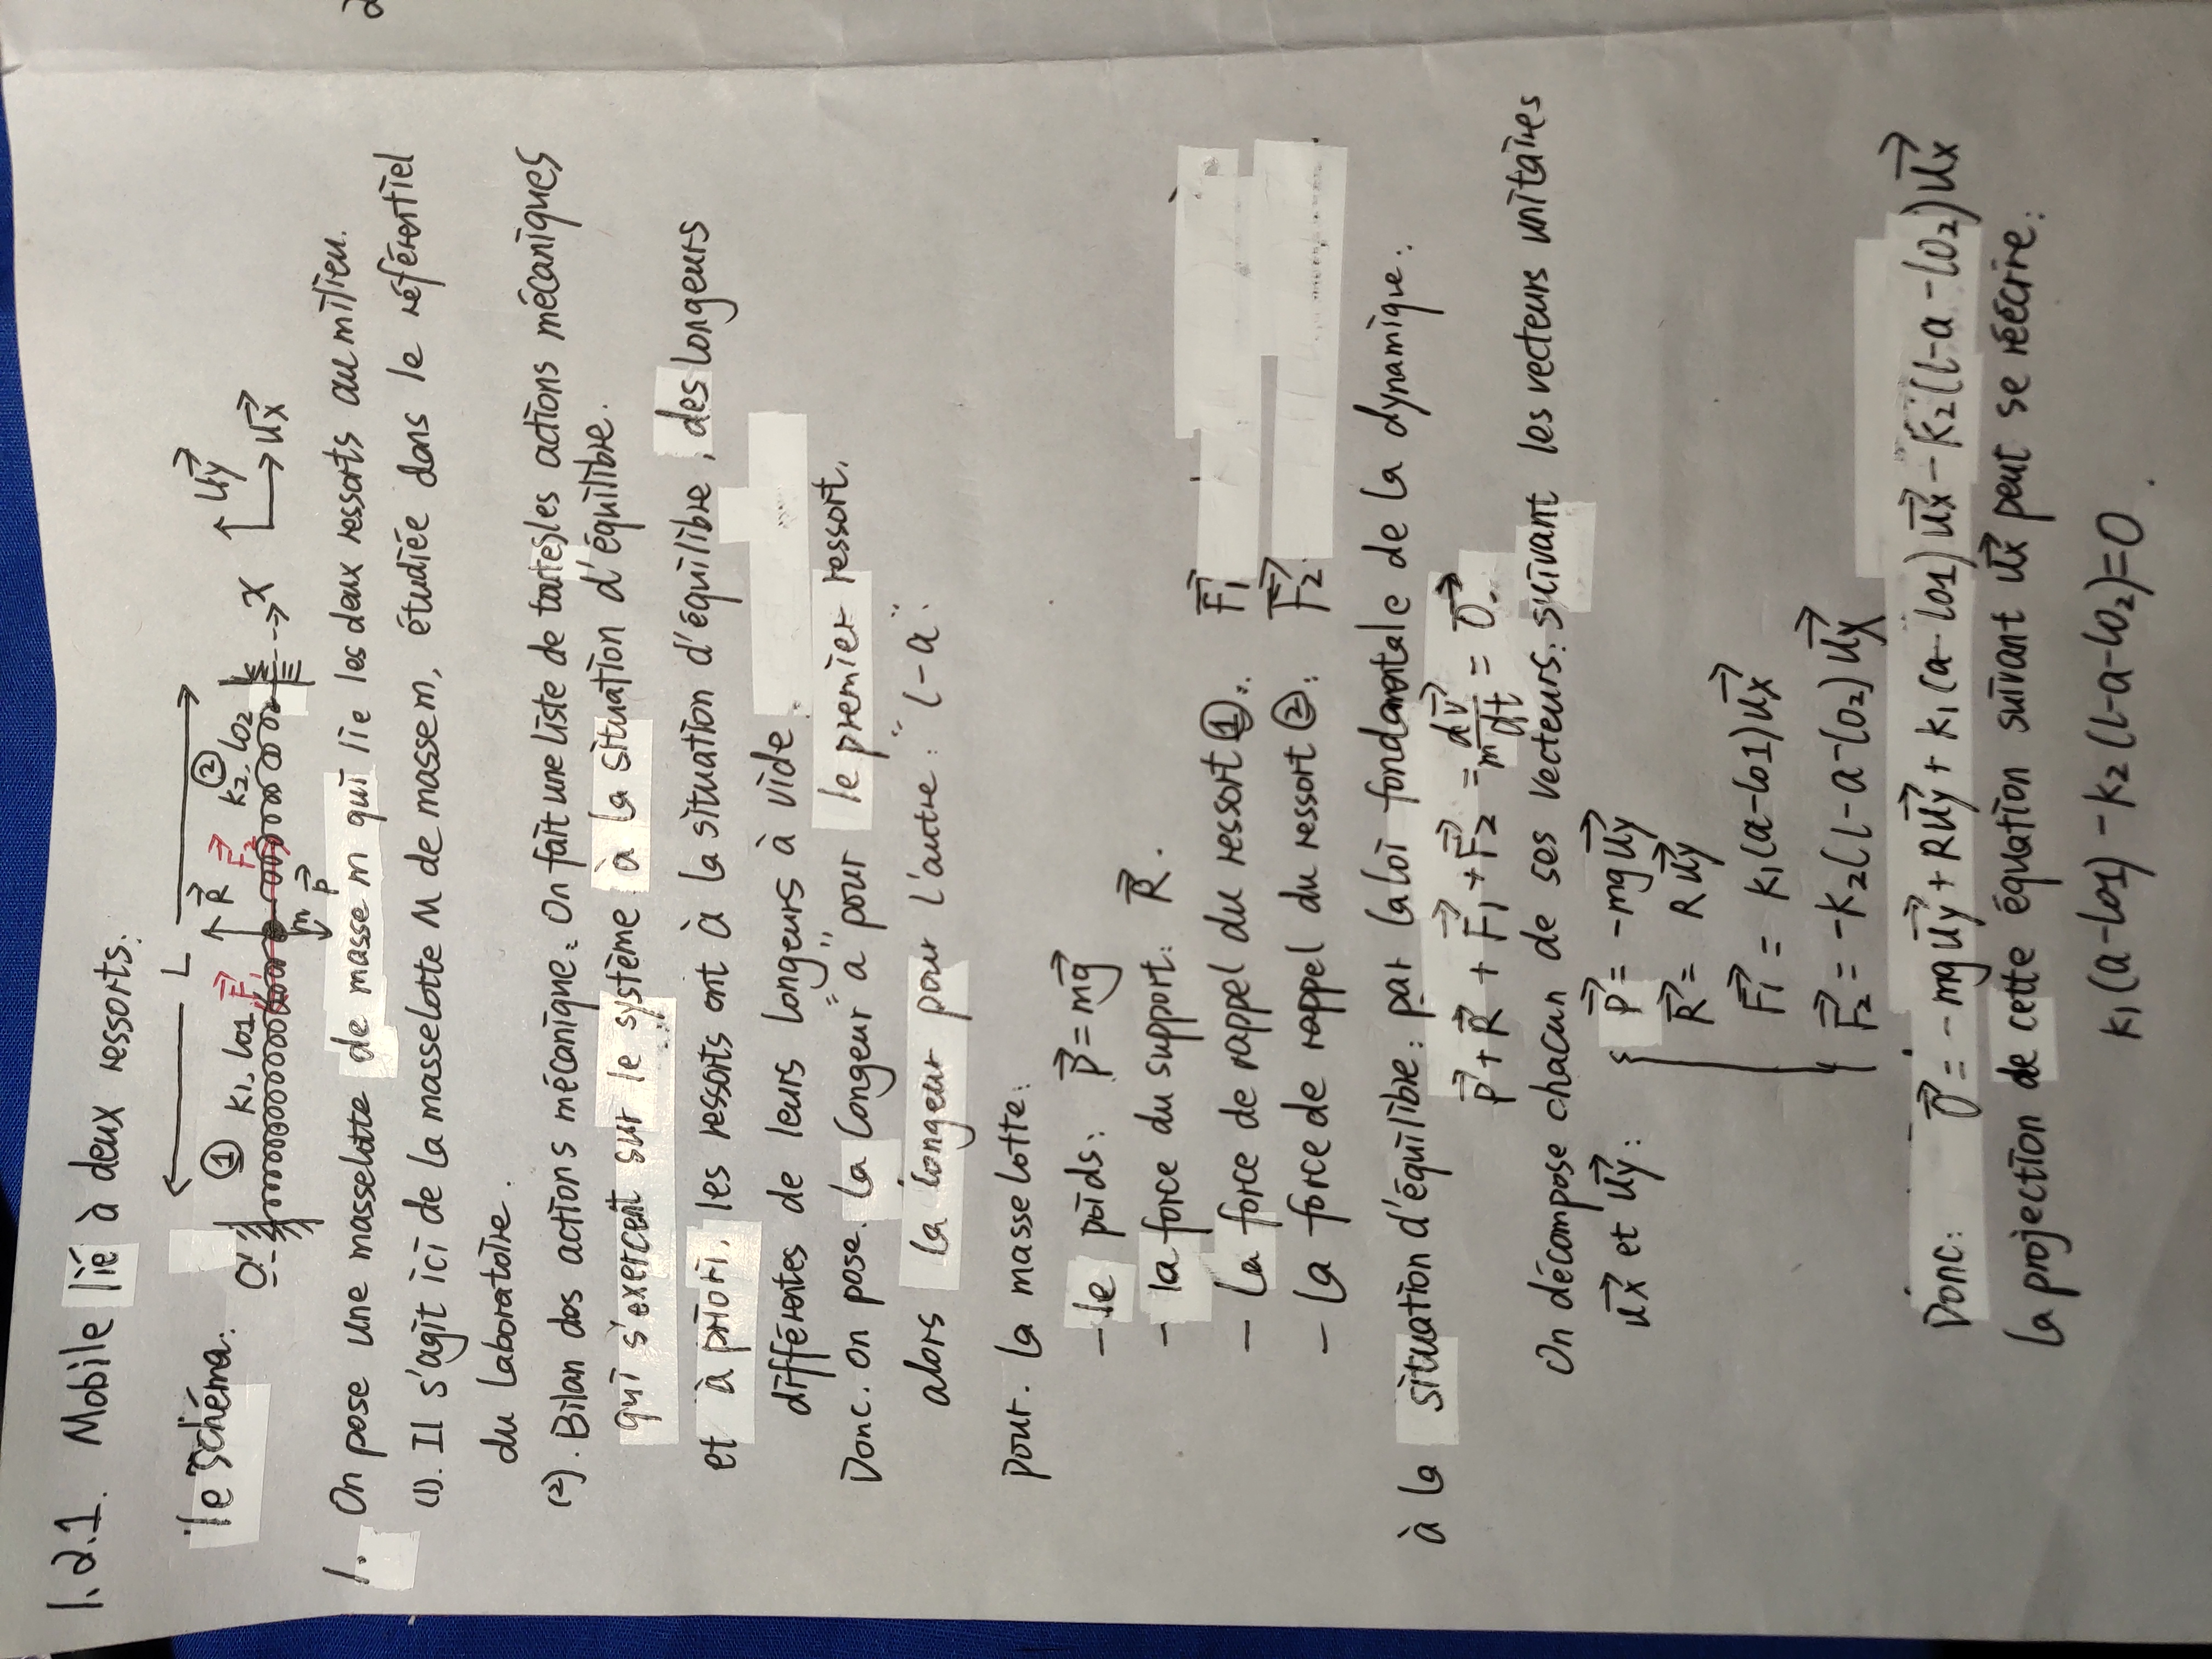 1.2.1. Mobile lié à deux ressorts:
le schéma:
L
① ②
R⃗
K1, lo1 F1⃗ F2⃗ K2, lo2
O' X
m
P⃗
Uy⃗
Ux⃗
1. On pose une masselotte de masse m qui lie les deux ressorts au milieu.
(1). Il s'agit ici de la masselotte M de masse m, étudiée dans le référentiel
du laboratoire.
(2). Bilan des actions mécanique: On fait une liste de toutes les actions mécaniques
qui s'exercent sur le système à la situation d'équilibre.
et à priori, les ressorts ont à la situation d'équilibre, des longeurs
différentes de leurs longeurs à vide.
Donc. on pose. la longeur "a" pour le premier ressort.
alors la longeur pour l'autre: "l-a".
pour. la masselotte:
- le poids: P⃗ = mg⃗
- la force du support: R⃗.
- La force de rappel du ressort ①: F1⃗
- La force de rappel du ressort ②: F2⃗
à la situation d'équilibre: par la loi fondamentale de la dynamique:
P⃗ + R⃗ + F1⃗ + F2⃗ = m dv⃗/dt = 0⃗.
On décompose chacun de ses vecteurs: suivant les vecteurs unitaires
ux⃗ et uy⃗: { P⃗ = -mg uy⃗
R⃗ = R uy⃗
F1⃗ = K1(a-lo1) ux⃗
F2⃗ = -K2(l-a-lo2) ux⃗
Donc: 0⃗ = -mg uy⃗ + R uy⃗ + K1(a-lo1) ux⃗ - K2(l-a-lo2) ux⃗
la projection de cette équation suivant ux⃗ peut se réécrire:
K1(a-lo1) - K2(l-a-lo2)=0.